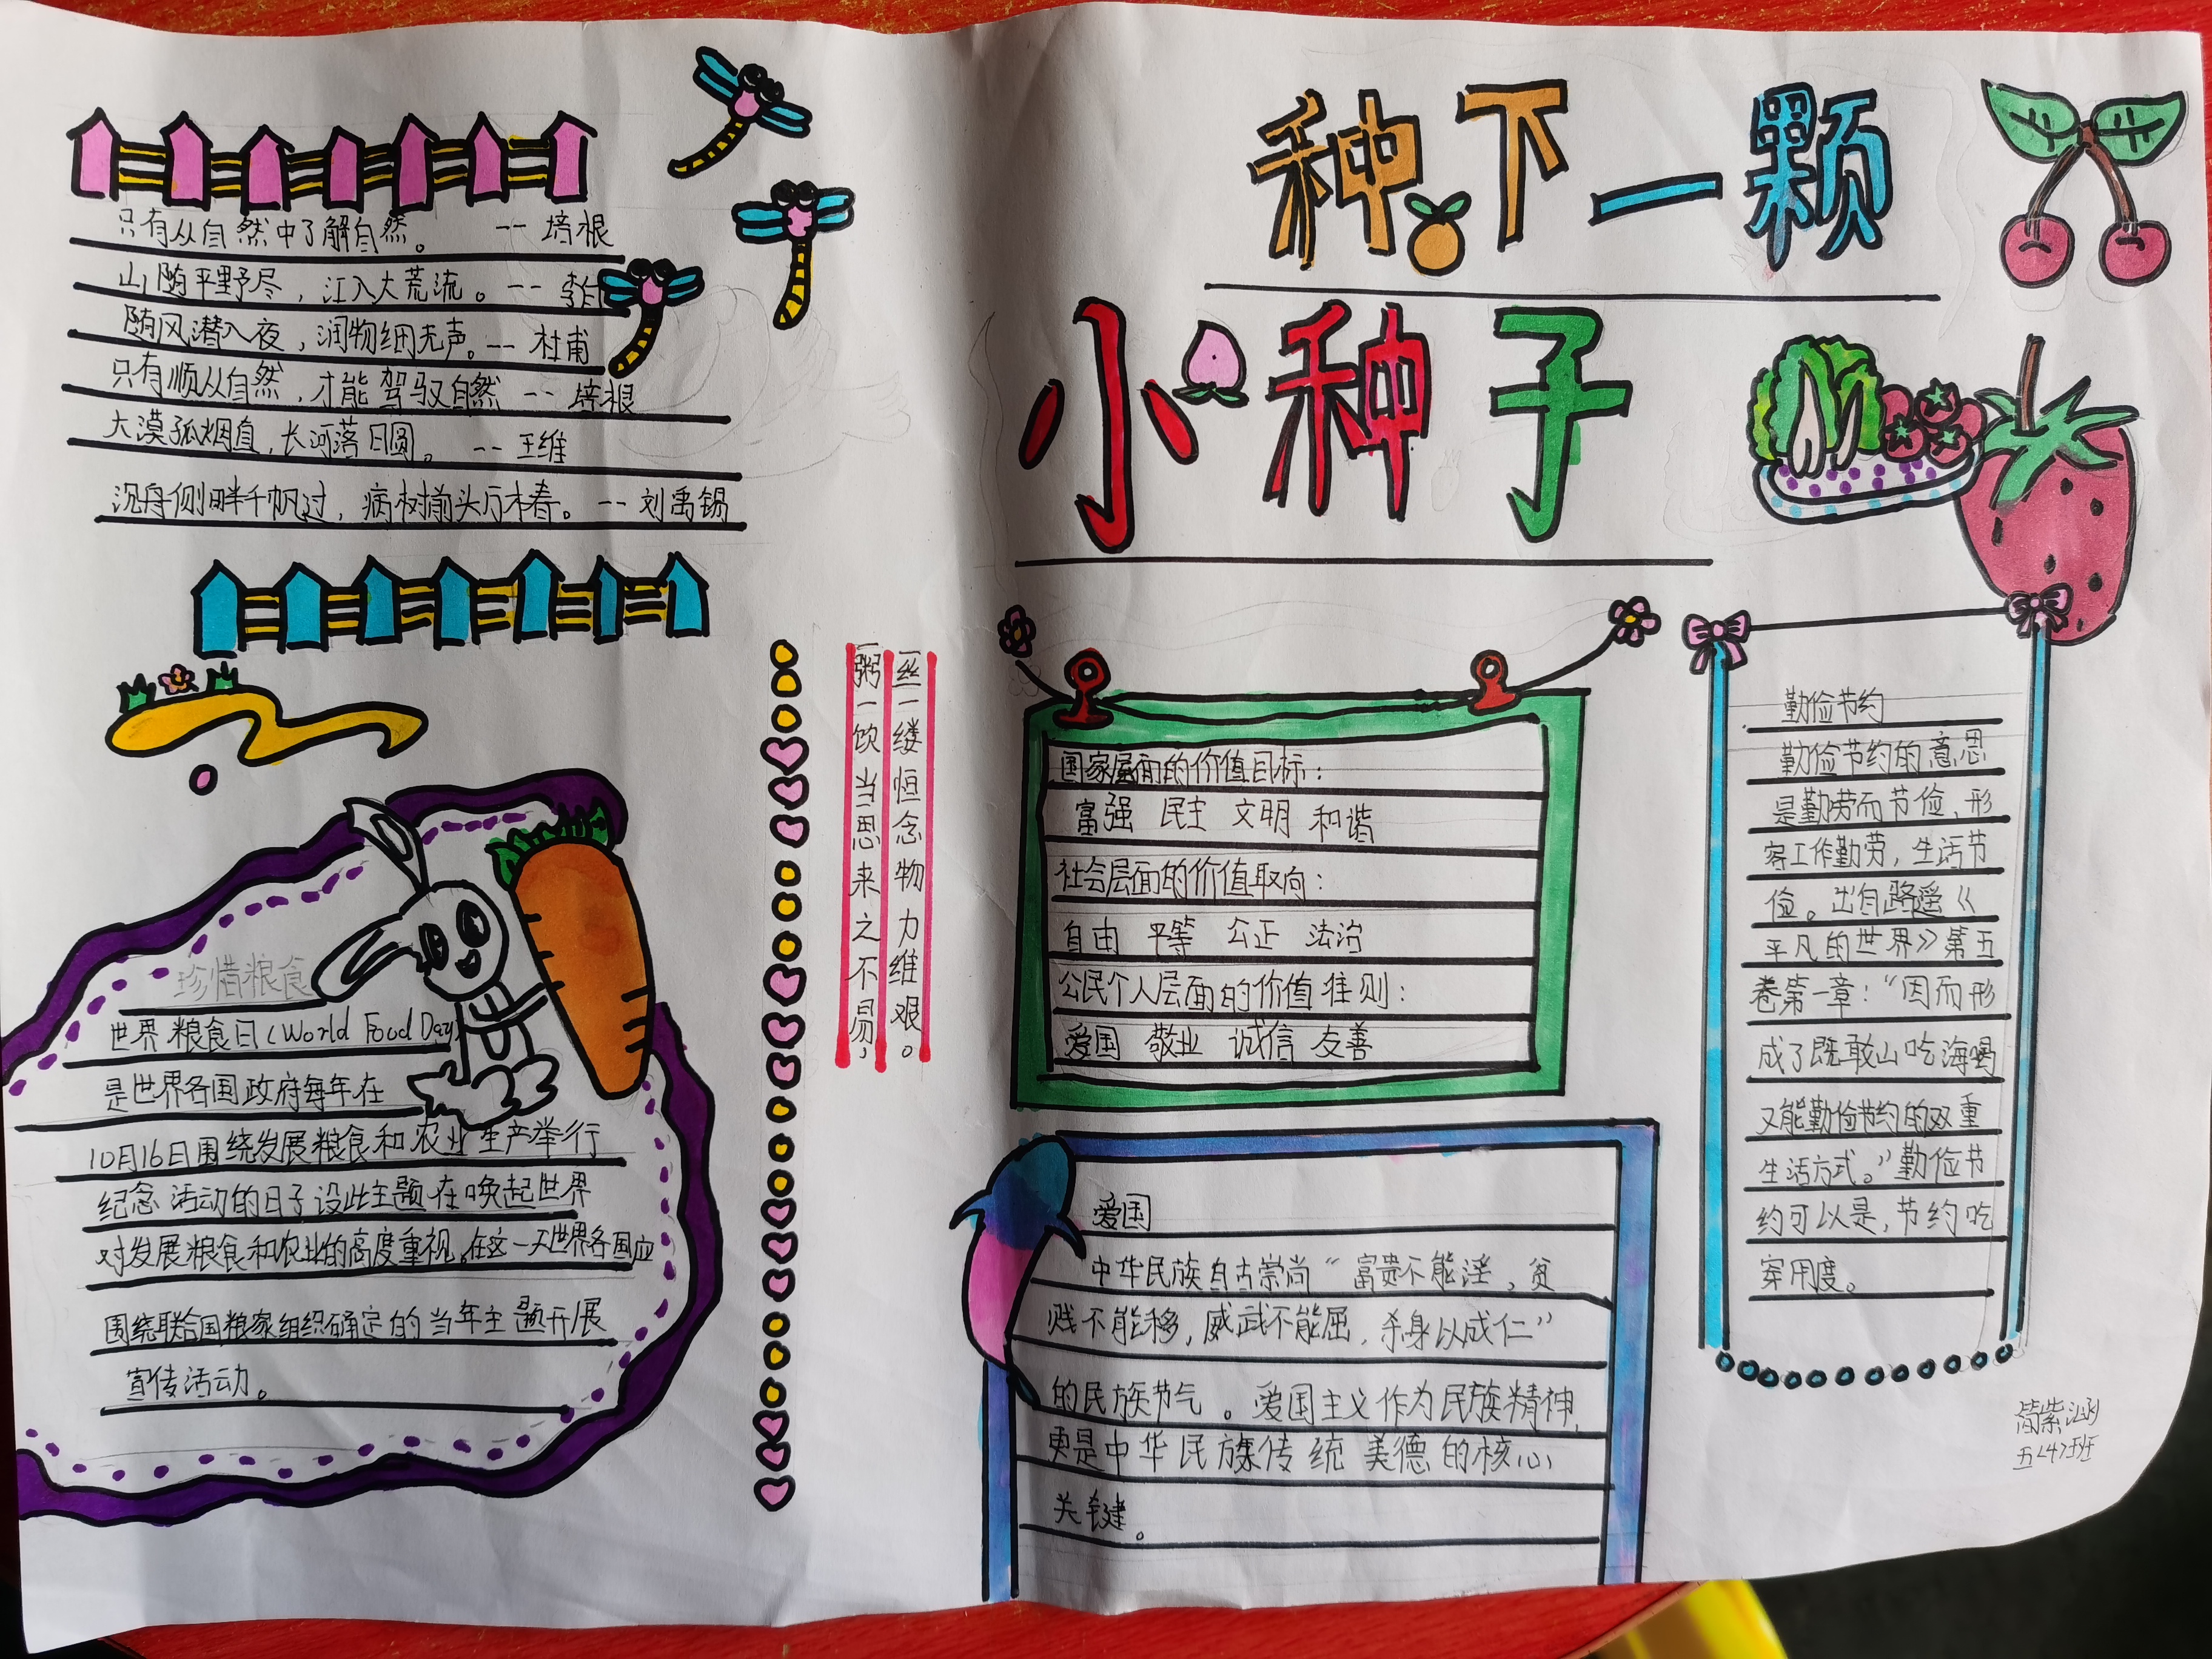 种下一颗
小种子
只有从自然中了解自然。 -- 培根
山随平野尽，江入大荒流。-- 李白
随风潜入夜，润物细无声。-- 杜甫
只有顺从自然，才能驾驭自然 -- 培根
大漠孤烟直，长河落日圆。 -- 王维
沉舟侧畔千帆过，病树前头万木春。-- 刘禹锡
珍惜粮食
世界粮食日(World Food Day)
是世界各国政府每年在
10月16日围绕发展粮食和农业生产举行
纪念活动的日子设此主题在唤起世界
对发展粮食和农业的高度重视。在这一天世界各国应
围绕联合国粮家组织确定的当年主题开展
宣传活动。
一粥一饮当思来之不易，
一丝一缕恒念物力维艰。
国家层面的价值目标：
富强 民主 文明 和谐
社会层面的价值取向：
自由 平等 公正 法治
公民个人层面的价值准则：
爱国 敬业 诚信 友善
爱国
中华民族自古崇尚“富贵不能淫，贫
贱不能移，威武不能屈，杀身以成仁”
的民族节气。爱国主义作为民族精神，
更是中华民族传统美德的核心
关键。
勤俭节约
勤俭节约的意思
是勤劳而节俭，形
容工作勤劳，生活节
俭。出自路遥《
平凡的世界》第五
卷第一章：“因而形
成了既敢山吃海喝
又能勤俭节约的双重
生活方式。”勤俭节
约可以是，节约吃
穿用度。
简紫涵
五<4>班